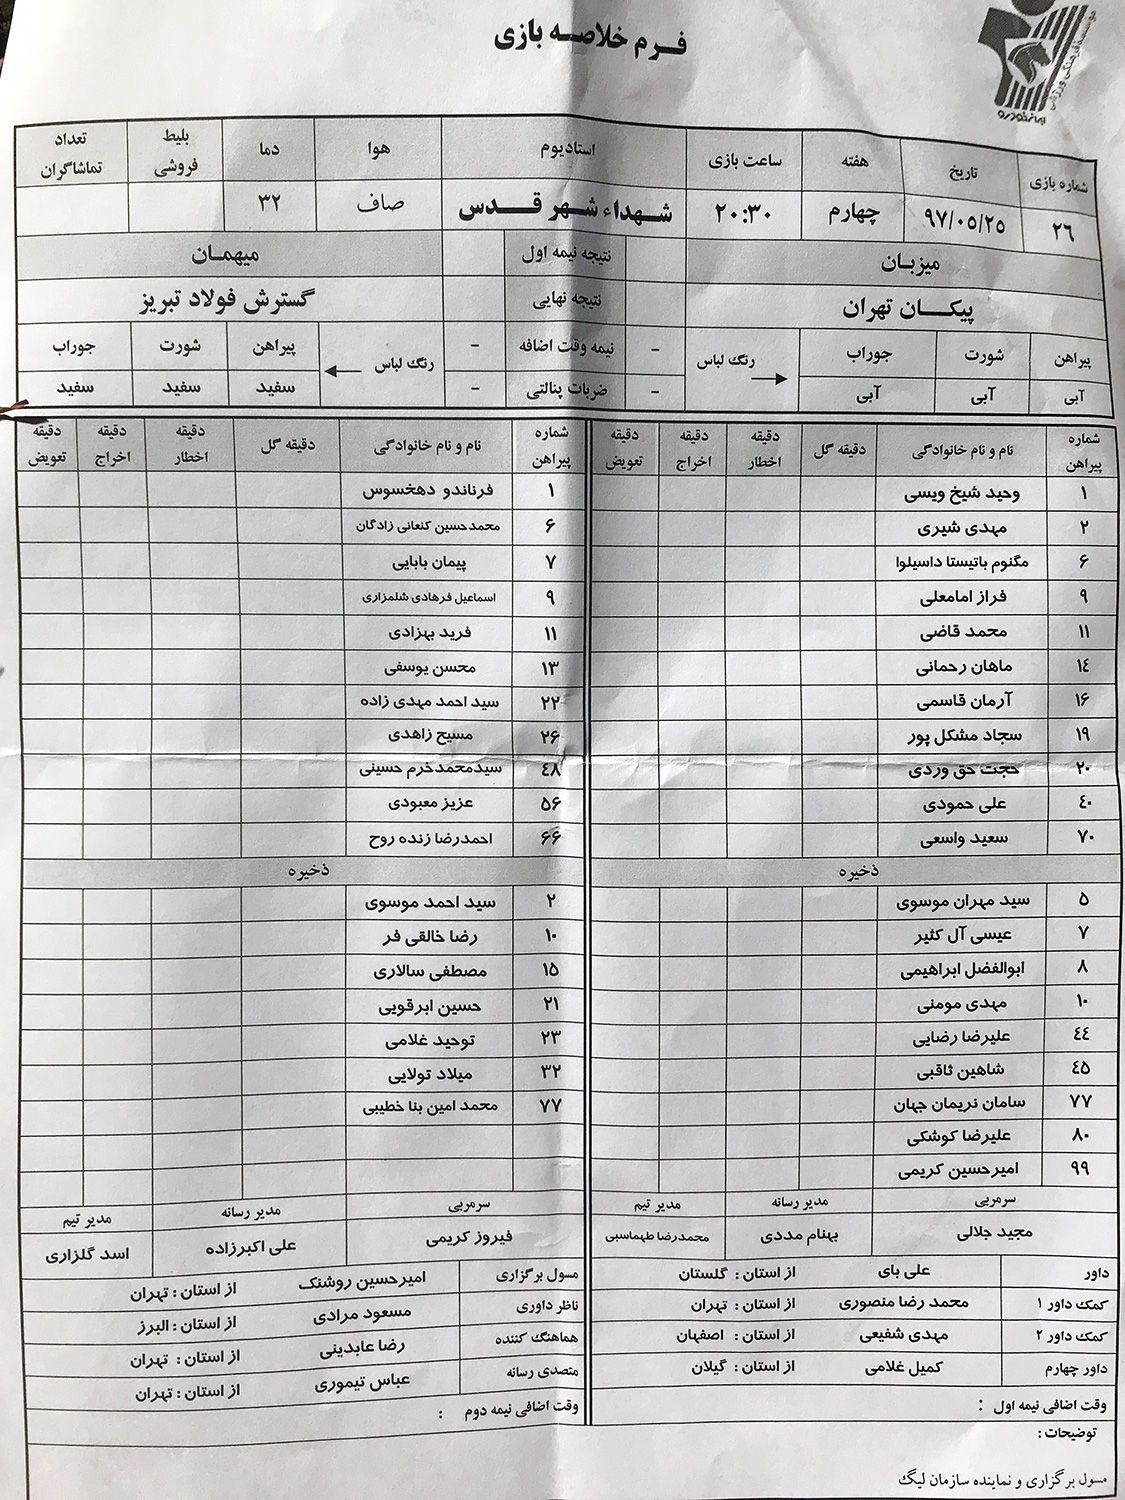 فرم خلاصه بازی
موسسه فرهنگی ورزشی
ایران خودرو
شماره بازی تاریخ هفته ساعت بازی استادیوم هوا دما بلیط فروشی تعداد تماشاگران
۲۶ ۹۷/۰۵/۲۵ چهارم ۲۰:۳۰ شهداء شهر قدس صاف ۳۲
میزبان نتیجه نیمه اول میهمان
پیکان تهران نتیجه نهایی گسترش فولاد تبریز
پیراهن شورت جوراب رنگ لباس - نیمه وقت اضافه - رنگ لباس پیراهن شورت جوراب
آبی آبی آبی - ضربات پنالتی - سفید سفید سفید
شماره پیراهن نام و نام خانوادگی دقیقه گل دقیقه اخطار دقیقه اخراج دقیقه تعویض شماره پیراهن نام و نام خانوادگی دقیقه گل دقیقه اخطار دقیقه اخراج دقیقه تعویض
۱ وحید شیخ ویسی ۱ فرناندو دهخسوس
۲ مهدی شیری ۶ محمدحسین کنعانی زادگان
۶ مگنوم باتیستا داسیلوا ۷ پیمان بابایی
۹ فراز امامعلی ۹ اسماعیل فرهادی شلمزاری
۱۱ محمد قاضی ۱۱ فرید بهزادی
۱۴ ماهان رحمانی ۱۳ محسن یوسفی
۱۶ آرمان قاسمی ۲۲ سید احمد مهدی زاده
۱۹ سجاد مشکل پور ۲۶ مسیح زاهدی
۲۰ حجت حق وردی ۴۸ سیدمحمدخرم حسینی
۴۰ علی حمودی ۵۶ عزیز معبودی
۷۰ سعید واسعی ۶۶ احمدرضا زنده روح
ذخیره ذخیره
۵ سید مهران موسوی ۲ سید احمد موسوی
۷ عیسی آل کثیر ۱۰ رضا خالقی فر
۸ ابوالفضل ابراهیمی ۱۵ مصطفی سالاری
۱۰ مهدی مومنی ۲۱ حسین ابرقویی
۴۴ علیرضا رضایی ۲۳ توحید غلامی
۴۵ شاهین ثاقبی ۳۲ میلاد تولایی
۷۷ سامان نریمان جهان ۷۷ محمد امین بنا خطیبی
۸۰ علیرضا کوشکی
۹۹ امیرحسین کریمی
سرمربی مدیر رسانه مدیر تیم سرمربی مدیر رسانه مدیر تیم
مجید جلالی بهنام مددی محمدرضا طهماسبی فیروز کریمی علی اکبرزاده اسد گلزاری
داور علی بای از استان : گلستان مسول برگزاری امیرحسین روشنک از استان : تهران
کمک داور ۱ محمد رضا منصوری از استان : تهران ناظر داوری مسعود مرادی از استان : البرز
کمک داور ۲ مهدی شفیعی از استان : اصفهان هماهنگ کننده رضا عابدینی از استان : تهران
داور چهارم کمیل غلامی از استان : گیلان متصدی رسانه عباس تیموری از استان : تهران
وقت اضافی نیمه اول : وقت اضافی نیمه دوم :
توضیحات :
مسول برگزاری و نماینده سازمان لیگ